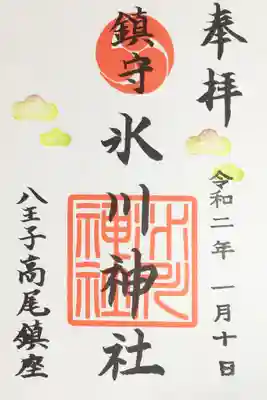 奉拝
令和二年 一月十日
鎮守氷川神社
氷川
神社
八王子高尾鎮座